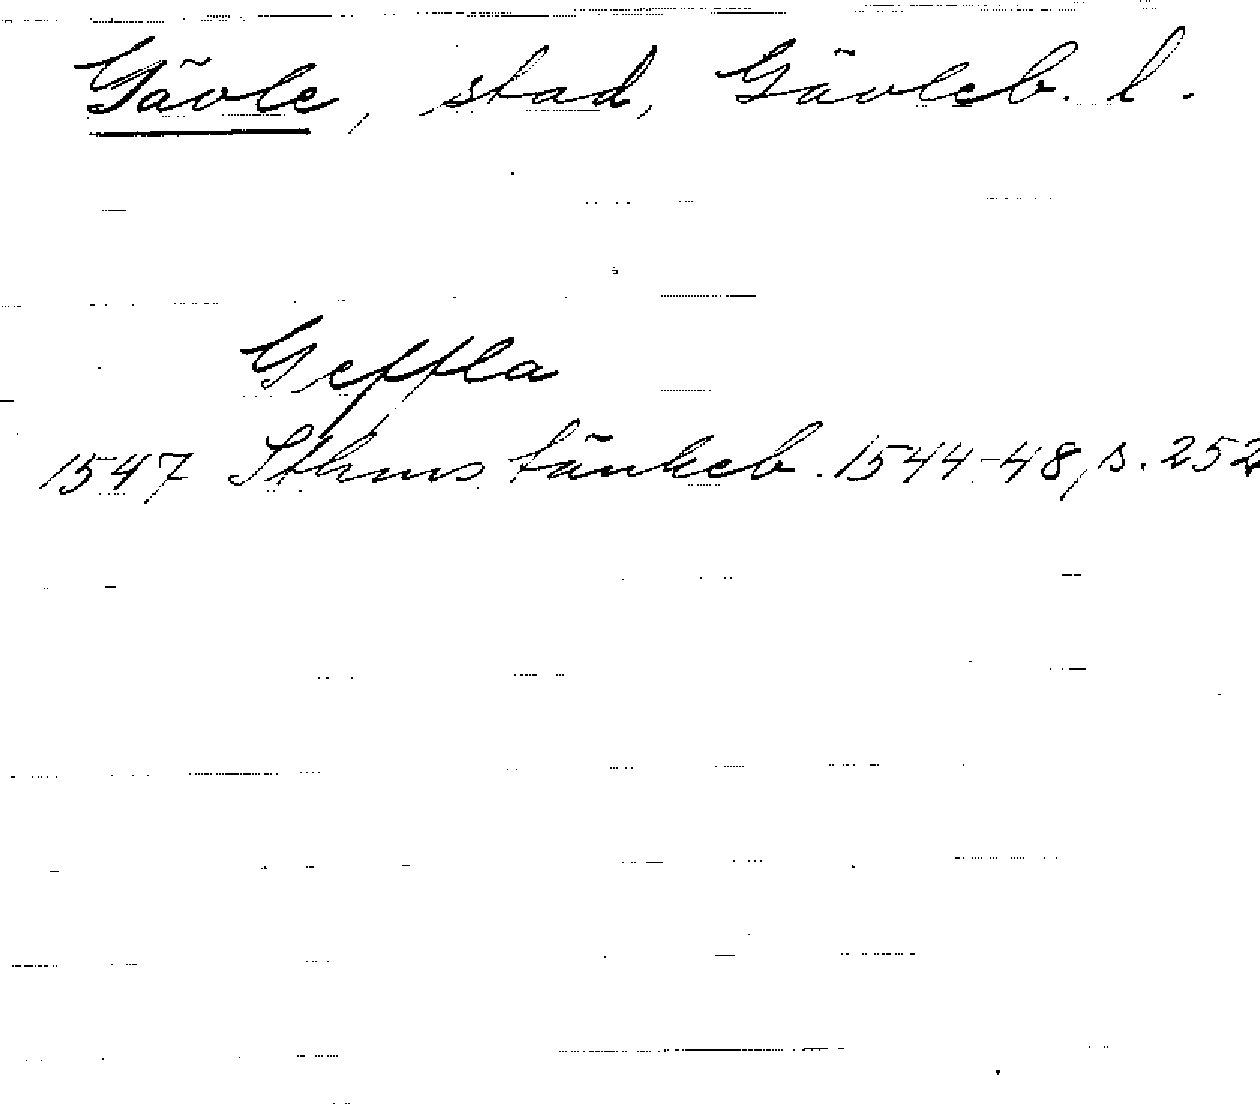 Gävle, stad, Gävleb. l.
Geffla
1547 Sthms tänkeb. 1544-48, s. 252